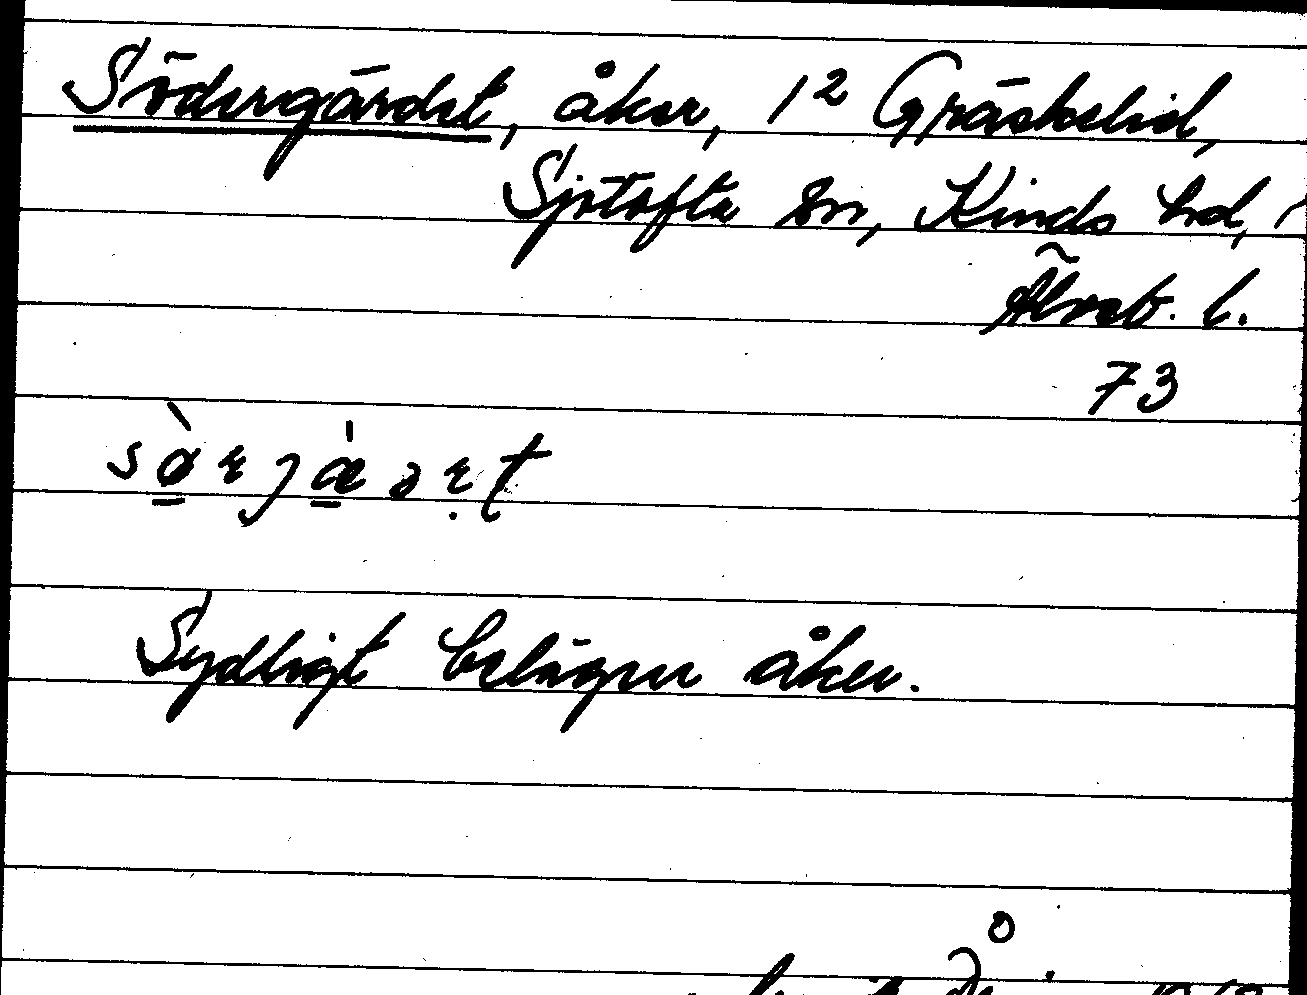 Södergärdet, åker, 1² Gräskelid,
Sjötofta sn, Kinds hd,
Älvsb. l.
73
Sydligt belägen åker.